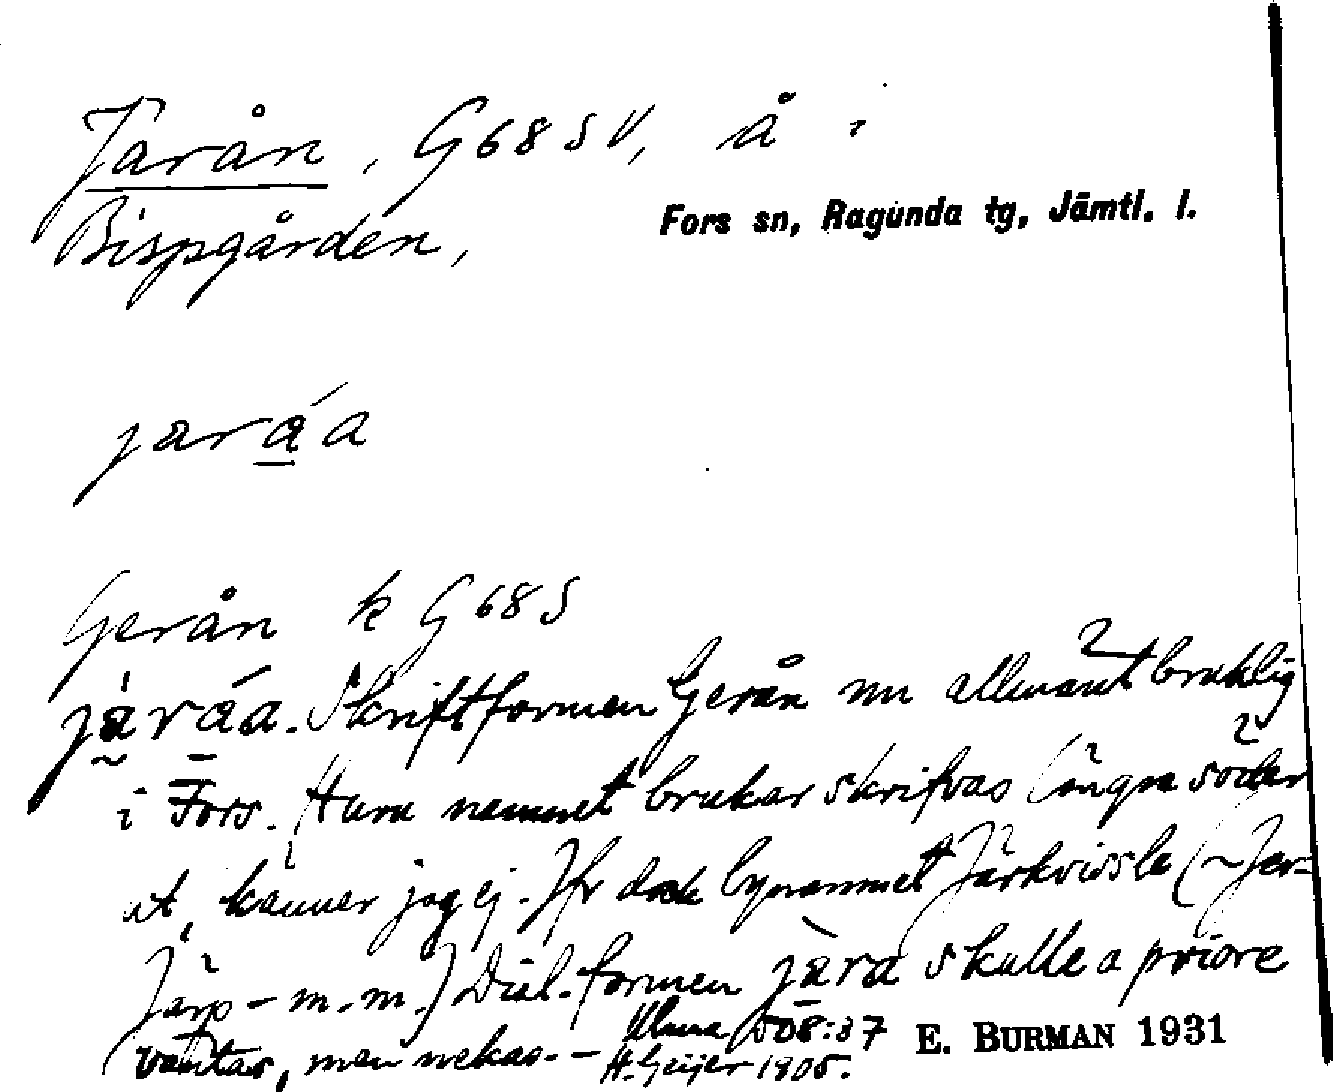 Jarån, G 68 SV, å
Fors sn, Ragunda tg, Jämtl. l.
Bispgården,
jaráa
Gerån k G 68 S
järáa. Skriftformen Gerån nu allmänt bruklig
i Fors. Huru namnet brukar skrifvas längre söder
ut, känner jag ej. Jfr dock bynamnet Järkvissle (~ Jer-
Järp- m.m.) Dial. formen jàra skulle a priore
väntas, men nekas. – Ulma 508:37
H. Geijer 1905.
E. BURMAN 1931